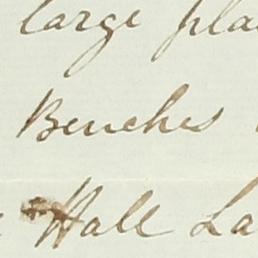 large pla
Benches
Hall La